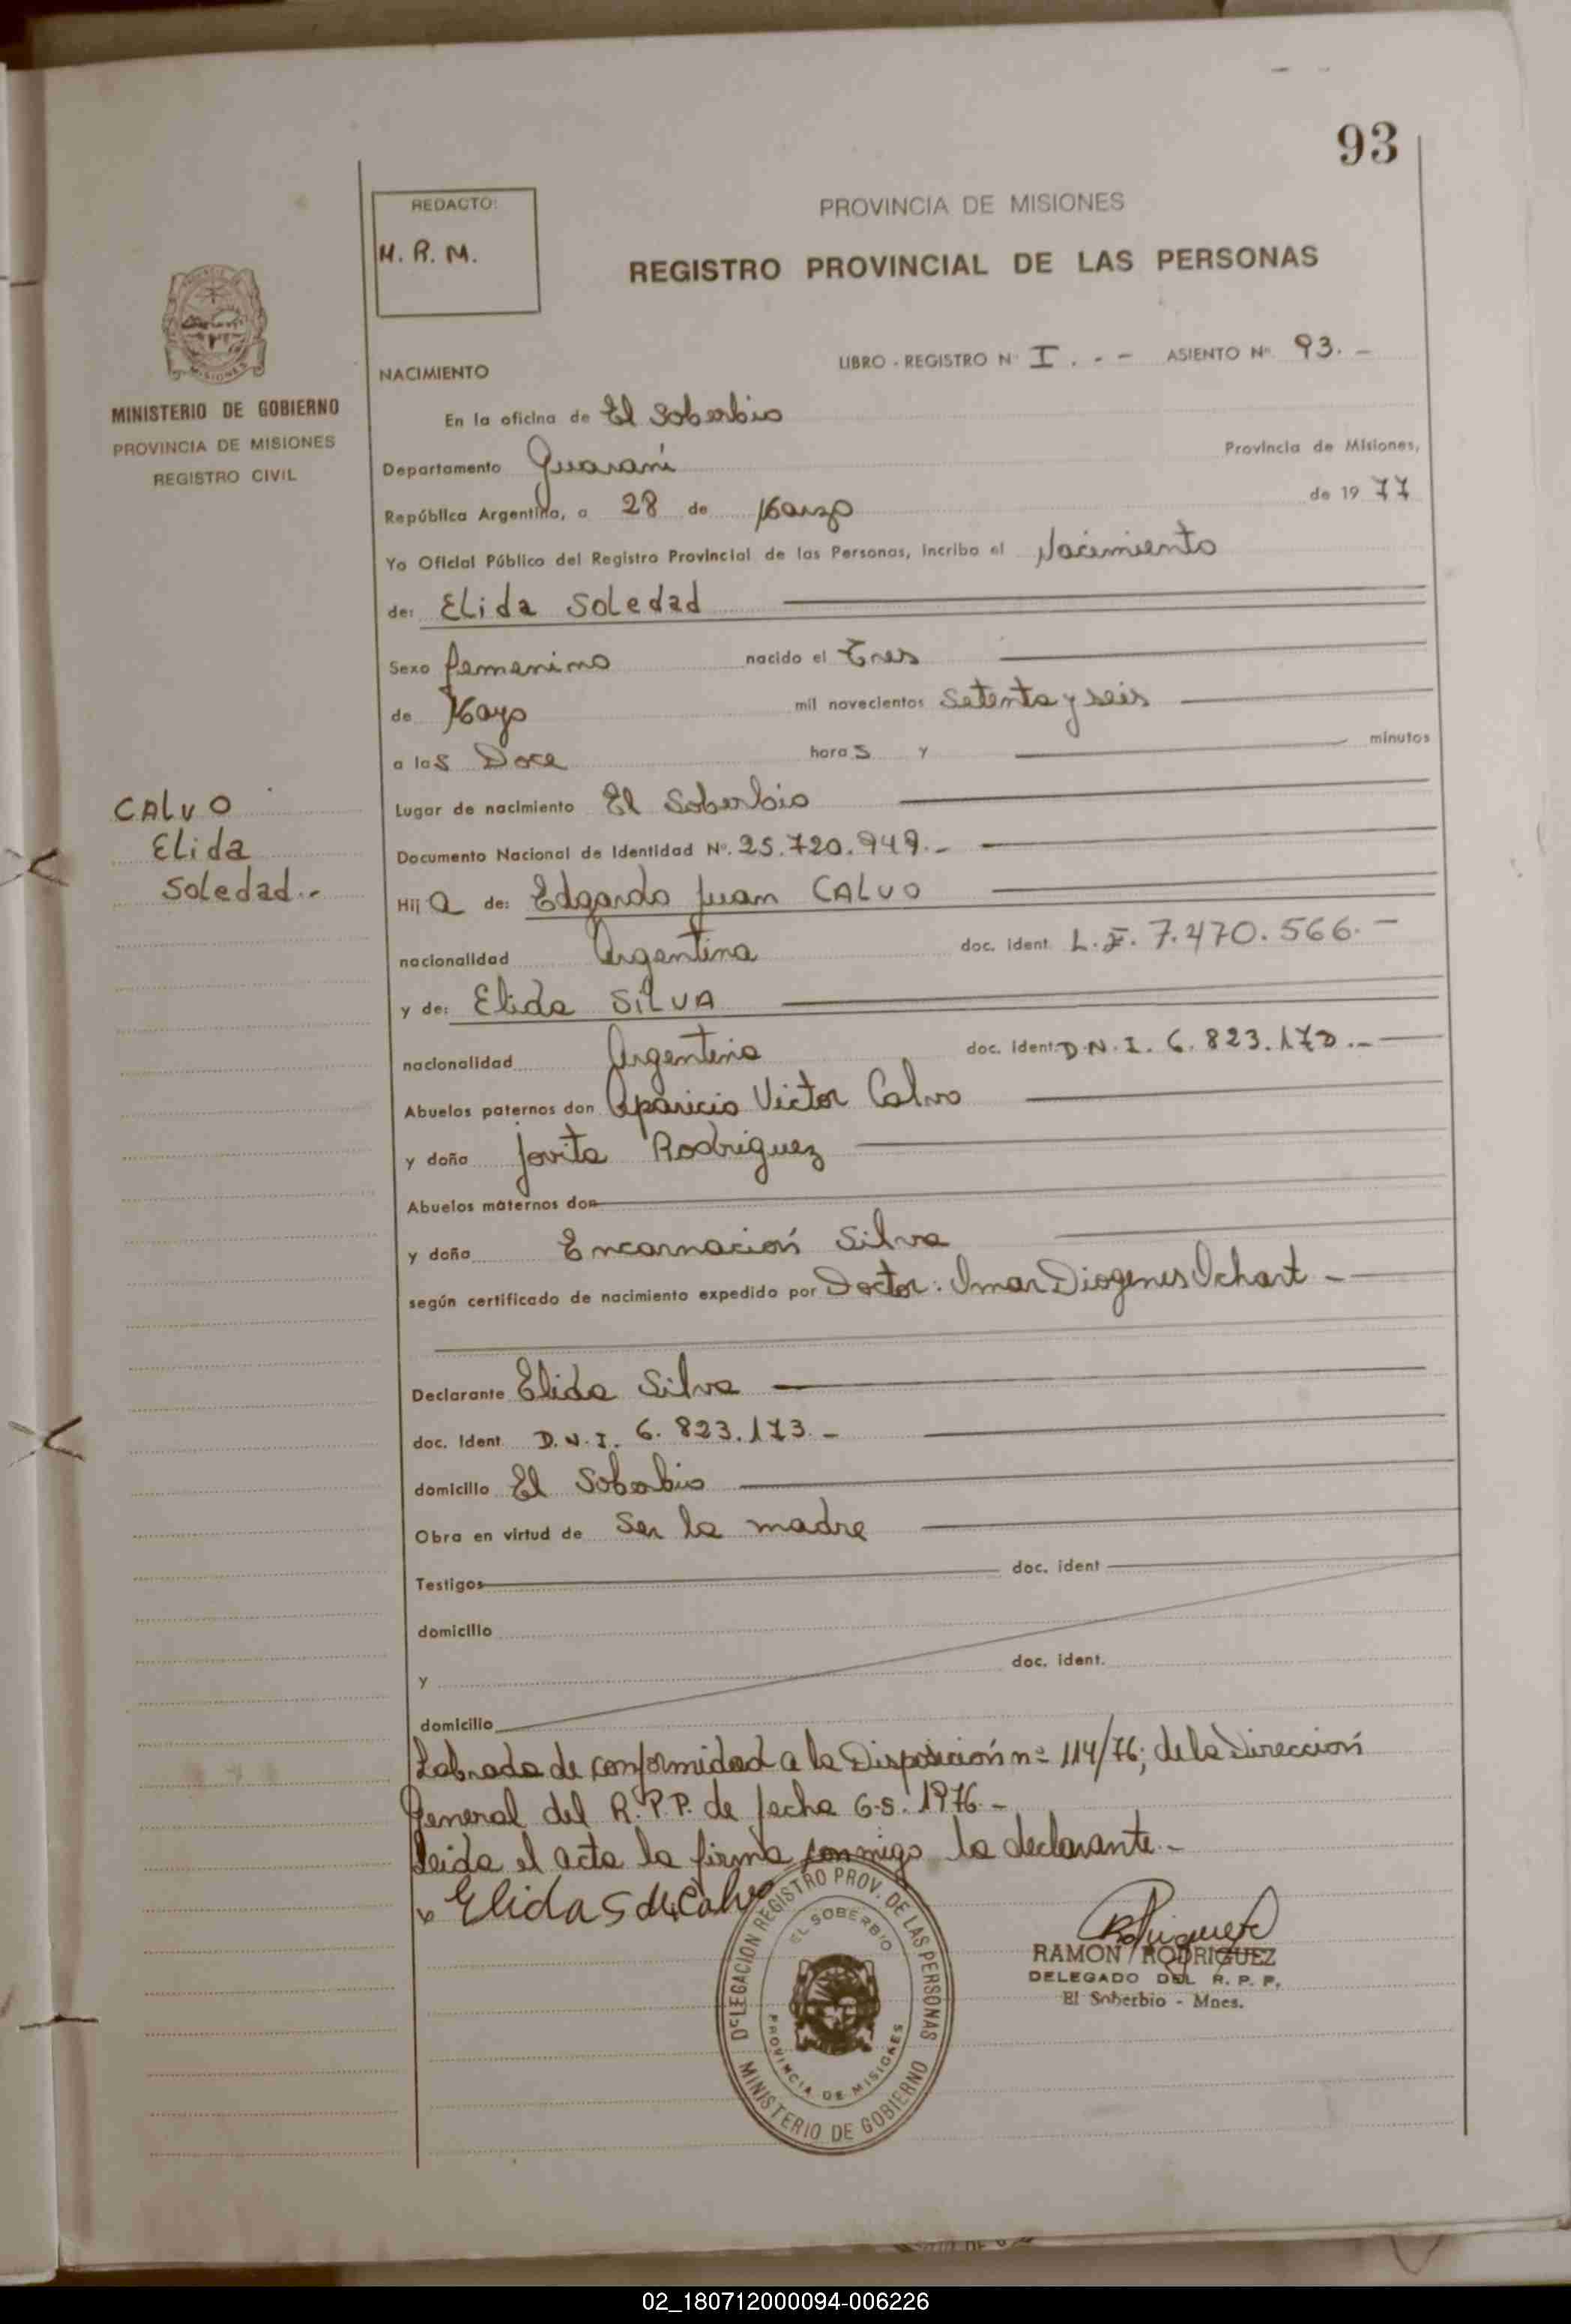 93
REDACTO:
M. R. M.
PROVINCIA DE MISIONES
REGISTRO PROVINCIAL DE LAS PERSONAS
MINISTERIO DE GOBIERNO
PROVINCIA DE MISIONES
REGISTRO CIVIL
LIBRO - REGISTRO Nº I . - - ASIENTO Nº 93. -
NACIMIENTO
En la oficina de El Soberbio
Departamento Guaraní Provincia de Misiones,
República Argentina, a 28 de Marzo de 1977
Yo Oficial Público del Registro Provincial de las Personas, incribo el Nacimiento
de: Elida Soledad
Sexo femenino nacido el Tres
de Mayo mil novecientos Setenta y seis
a las Doce horas y minutos
CALVO
Elida
Soledad.-
Lugar de nacimiento El Soberbio
Documento Nacional de Identidad Nº. 25.720.949.-
Hija de: Edgardo Juan CALVO
nacionalidad Argentina doc. ident. L.E. 7.470.566.-
y de: Elida SILVA
nacionalidad Argentina doc. ident. D.N.I. 6.823.173.-
Abuelos paternos don Aparicio Victor Calvo
y doña Jovita Rodriguez
Abuelos maternos don
y doña Encarnación Silva
según certificado de nacimiento expedido por Doctor: Imar Diogenes Ichart -
Declarante Elida Silva
doc. Ident D.N.I. 6.823.173.-
domicilio El Soberbio
Obra en virtud de Ser la madre
Testigos doc. ident
domicilio
y doc. ident.
domicilio
Labrada de conformidad a la Disposición nº 114/76; de la Dirección
General del R.P.P. de fecha 6-5-1976.-
Leida el acta la firma conmigo la declarante.-
Elida S de Calvo
DELEGACION REGISTRO PROV. DE LAS PERSONAS
EL SOBERBIO
PROVINCIA DE MISIONES
MINISTERIO DE GOBIERNO
RAMON RODRIGUEZ
DELEGADO DEL R. P. P.
El Soberbio - Mnes.
02_180712000094-006226